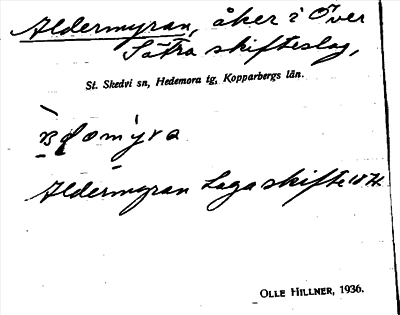 Aldermyran, åker i Över
Sätra skifteslag,
St. Skedvi sn, Hedemora tg, Kopparbergs län.
Aldermyran Laga skifte
OLLE HILLNER, 1936.